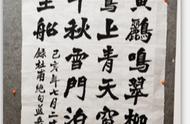 黃鸝鳴翠柳
鷺上青天窗
千秋雪門泊
里船
己亥年七月二
錄杜甫絕句